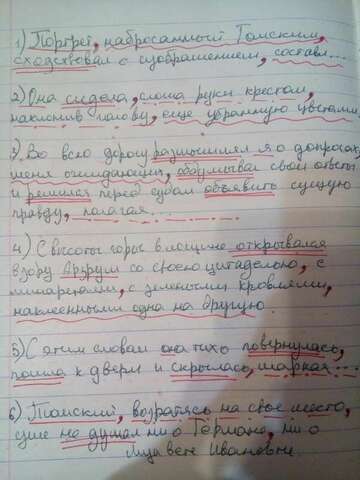 1) Портрет, набросанный Томским,
сходствовал с изображением, составл...
2) Она сидела, сложа руки крестом,
наклонив голову, еще убранную цветами.
3) Во всю дорогу размышлял я о допросах,
меня ожидающих, обдумывал свои ответы
и решился перед судом объявить сущую
правду, полагая...
4) С высоты горы в лощине открывался
взору Арзрум со своею цитаделью, с
минаретами, с зелеными кровлями,
наклеенными одна на другую.
5) С этим словом она тихо повернулась,
пошла к двери и скрылась, шаркая...
6) Томский, возратясь на свое место,
уже не думал ни о Германе, ни о
Лизавете Ивановне.